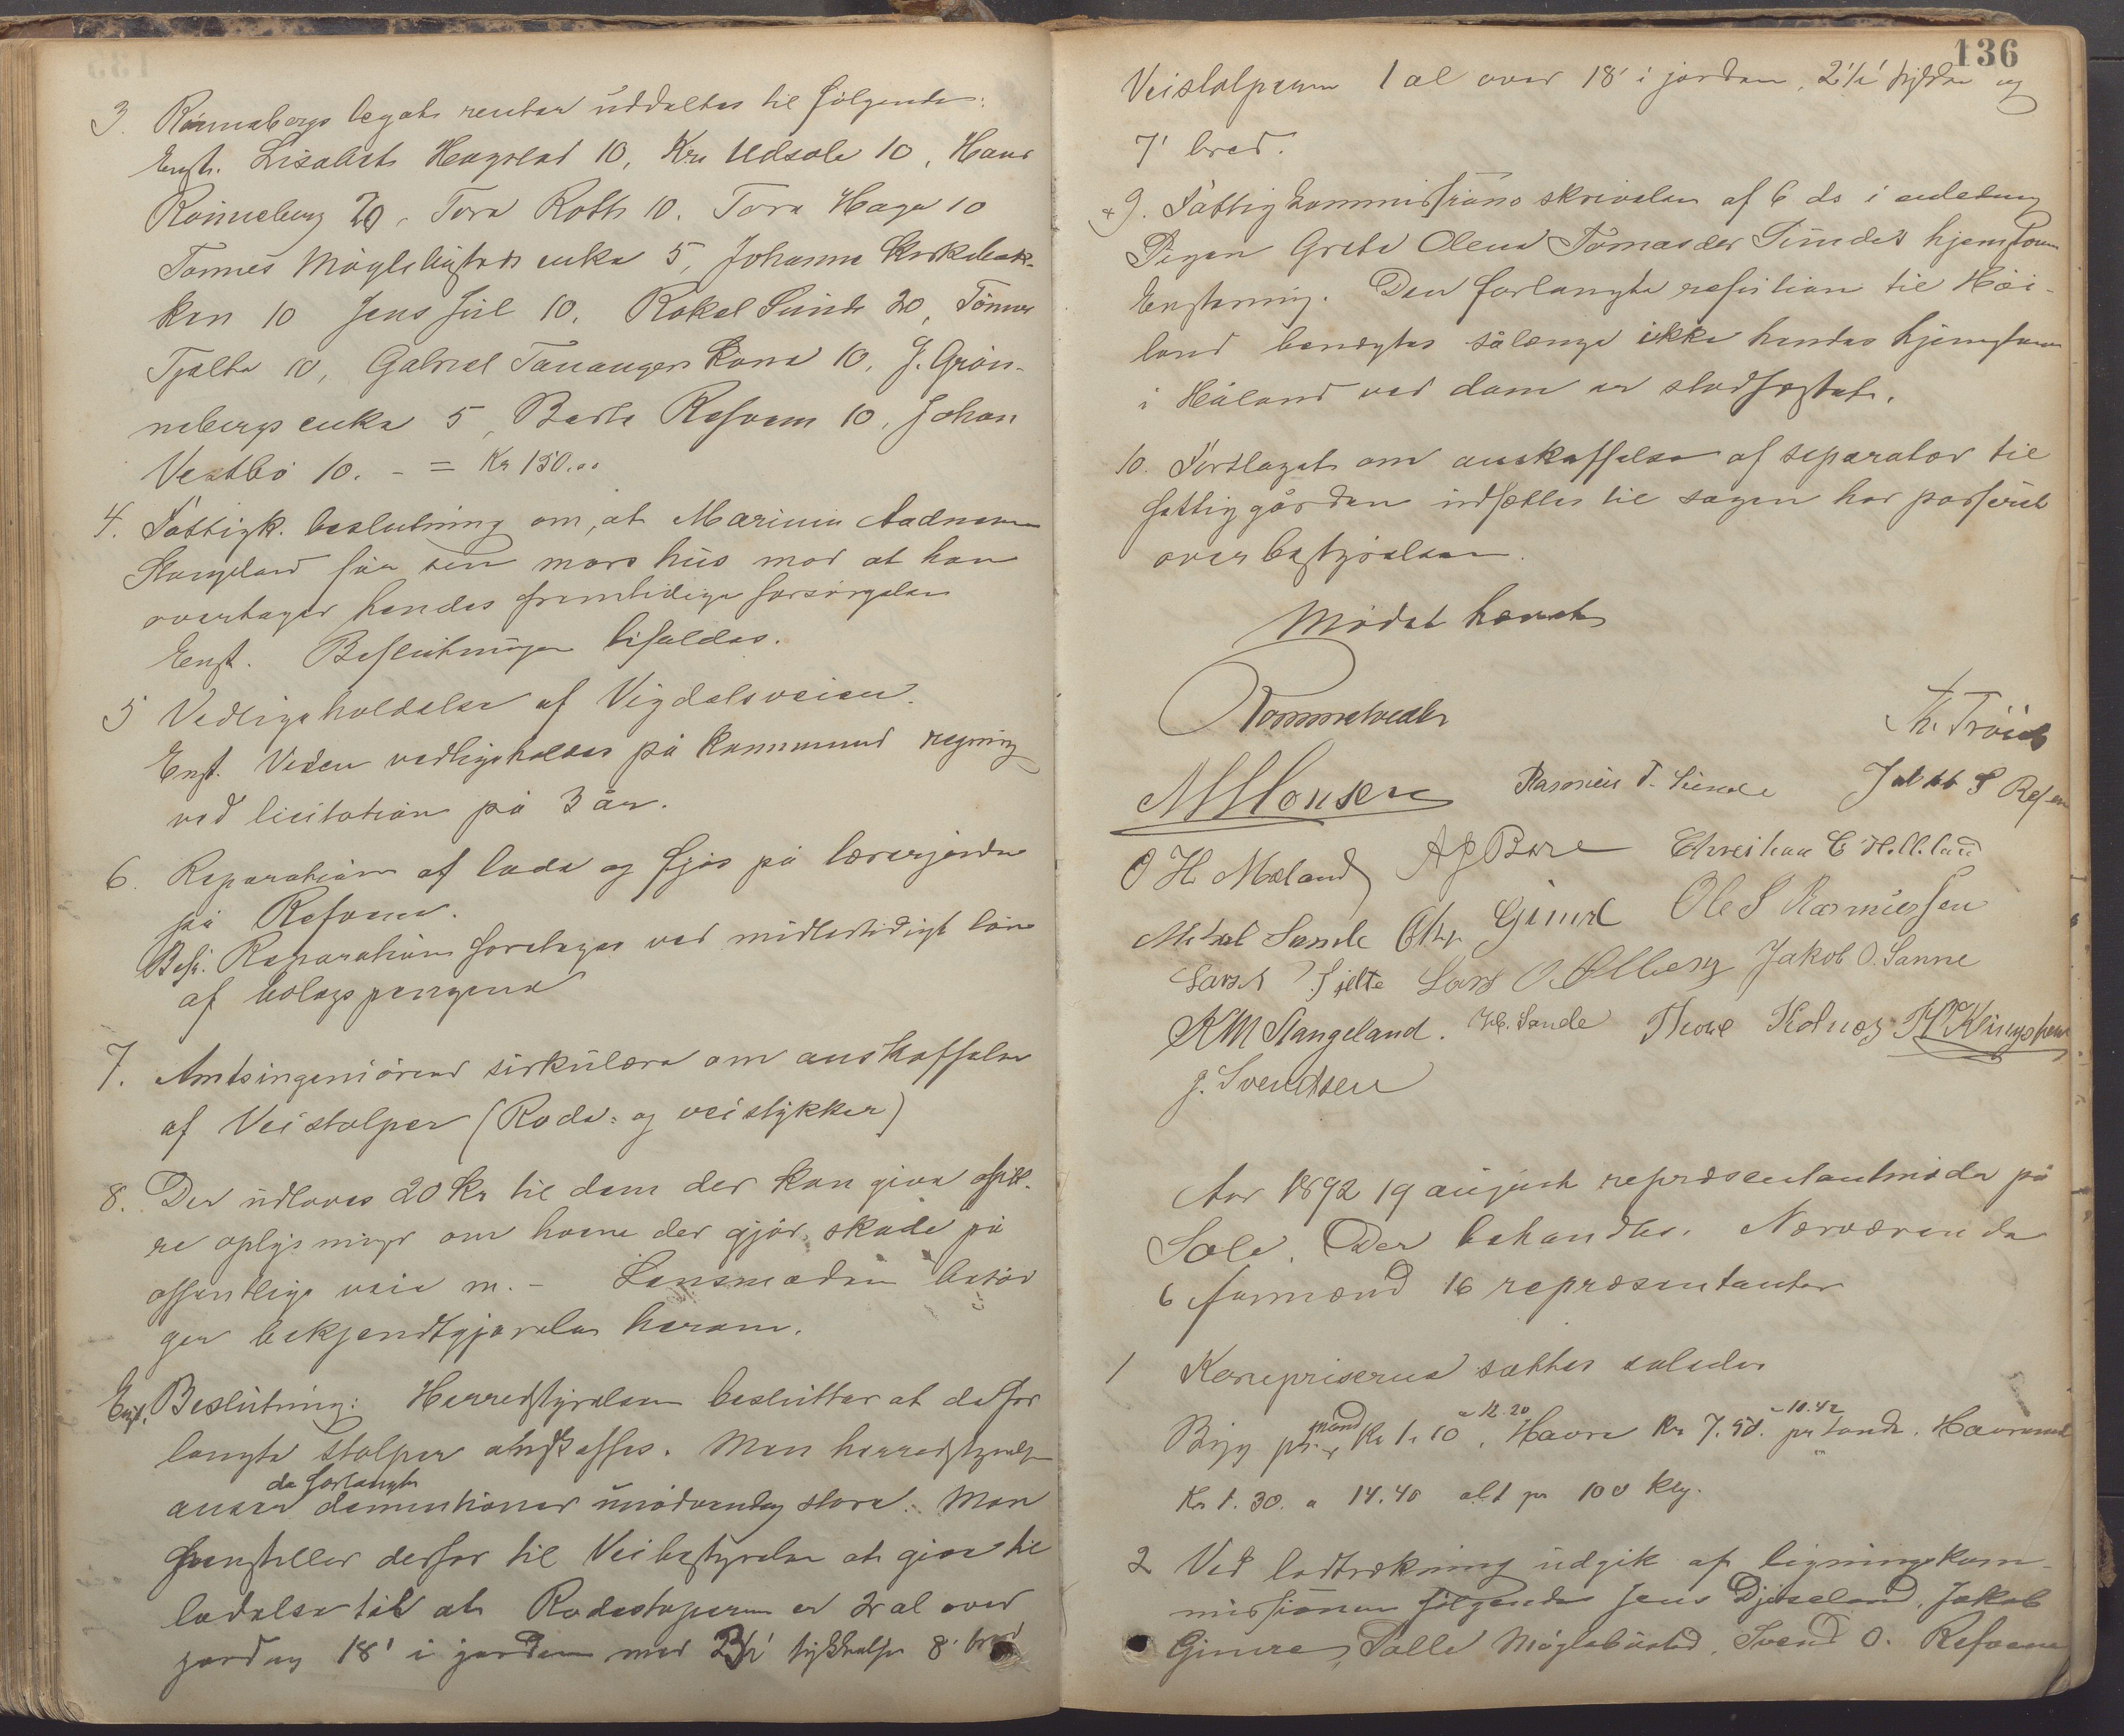 3. Rönnebergs legats renter uddeltes til følgende:
Enst. Lisabet Hogstad 10, Kri Udsola 10, Hans
Rönneberg 20, Tora Roth 10. Tora Haga 10
Tønnes Møglebustads enke 5, Johanne Kirkebak-
ken 10 Jens Jül 10, Rakel Sunde 20, Tønnes
Tjelta 10, Gabriel Tananger Kona 10, J. Grøn-
nebergs enke 5, Berta Refsem 10, Johan
Vestbö 10. - = Kr 150.00
4. Fattigk. beslutning om, at Marinius Aadnesen
Stangeland får sin mors hus mod at han
overtager hendes fremtidige forsørgelse
Enst. Beslutningen bifaldes.
5 Vedligeholdelse af Vigdelsveien.
Enst. Veien vedligeholdes på kommunens regning
ved licitation på 3 år.
6. Reparation af lade og fjøs på lærerjorden
på Refsnes.
Besl. Reparation foretages ved midlertidigt lån
af bolagspengene
7. Amtsingeniørens sirkulære om anskaffelse
af Veistolper (Rode- og veistykker)
8. Der udloves 20 Kr til dem der kan give sik-
re oplysninger om hvem der gjør skade på
offentlige veie m. - Lensmanden besør
ger bekjendtgjørelse herom.
Enst. Beslutning: Herredstyrelsen beslutter at de for
langte stolper anskaffes. Men herredstyrelsen
de forlangte
anser dimentioner unødvendig store. Man
henstiller derfor til Veibestyrelsen at give til
ladelse til at Rodestolperne er 2 al over
jord og 18' i jorden med 2½' tykkelse 8' bred
136
Veistolperne 1 al over 18' i jorden, 2½' tykke og
7' bred.
9. Fattigkommissions skrivelse af 6 ds i anledning
Pigen Grete Olena Tomasdr Sundes hjemstavn
Enstemmig. Den forlangte refusion til Høi-
land benegtes sålænge ikke hendes hjemstavn
i Håland ved dom er stadfæstet.
10. Forslaget om anskaffelse af separator til
fattiggården udsættes til sagen har passeret
overbestyrelsen.
Mødet hævet
Rommetvedt
Th. Tröich
M Monsen Rasmus T. Sunde Jakob S Refsn
O H Meland A G Bore Christian C Helleland
Mikal Sande Ole Gimre Ole S Rasmussen
Lars Tjelte Lars O Ølberg Jakob O. Sanne
K M Stangeland. H. Sande Thore Kolnes H Klingsheim
J. Svendsen
Aar 1892 19 august repræsentantmøde på
Sole. Der behandles. Nærværende
6 formænd 16 repræsentanter
1 Kornpriserne sattes saledes
Byg pr. Kr 1.10 a 12.20, Havre Kr 7.50. a 10.42 pr tonde. Havremel
Kr 1.30. a 14.40 alt pr 100 Klg.
2 Ved lodtrækning udgik af ligningskom-
missionen følgende Jens Djuseland, Jakob
Gimre, Salle Møglebustad, Svend O. Refsnes